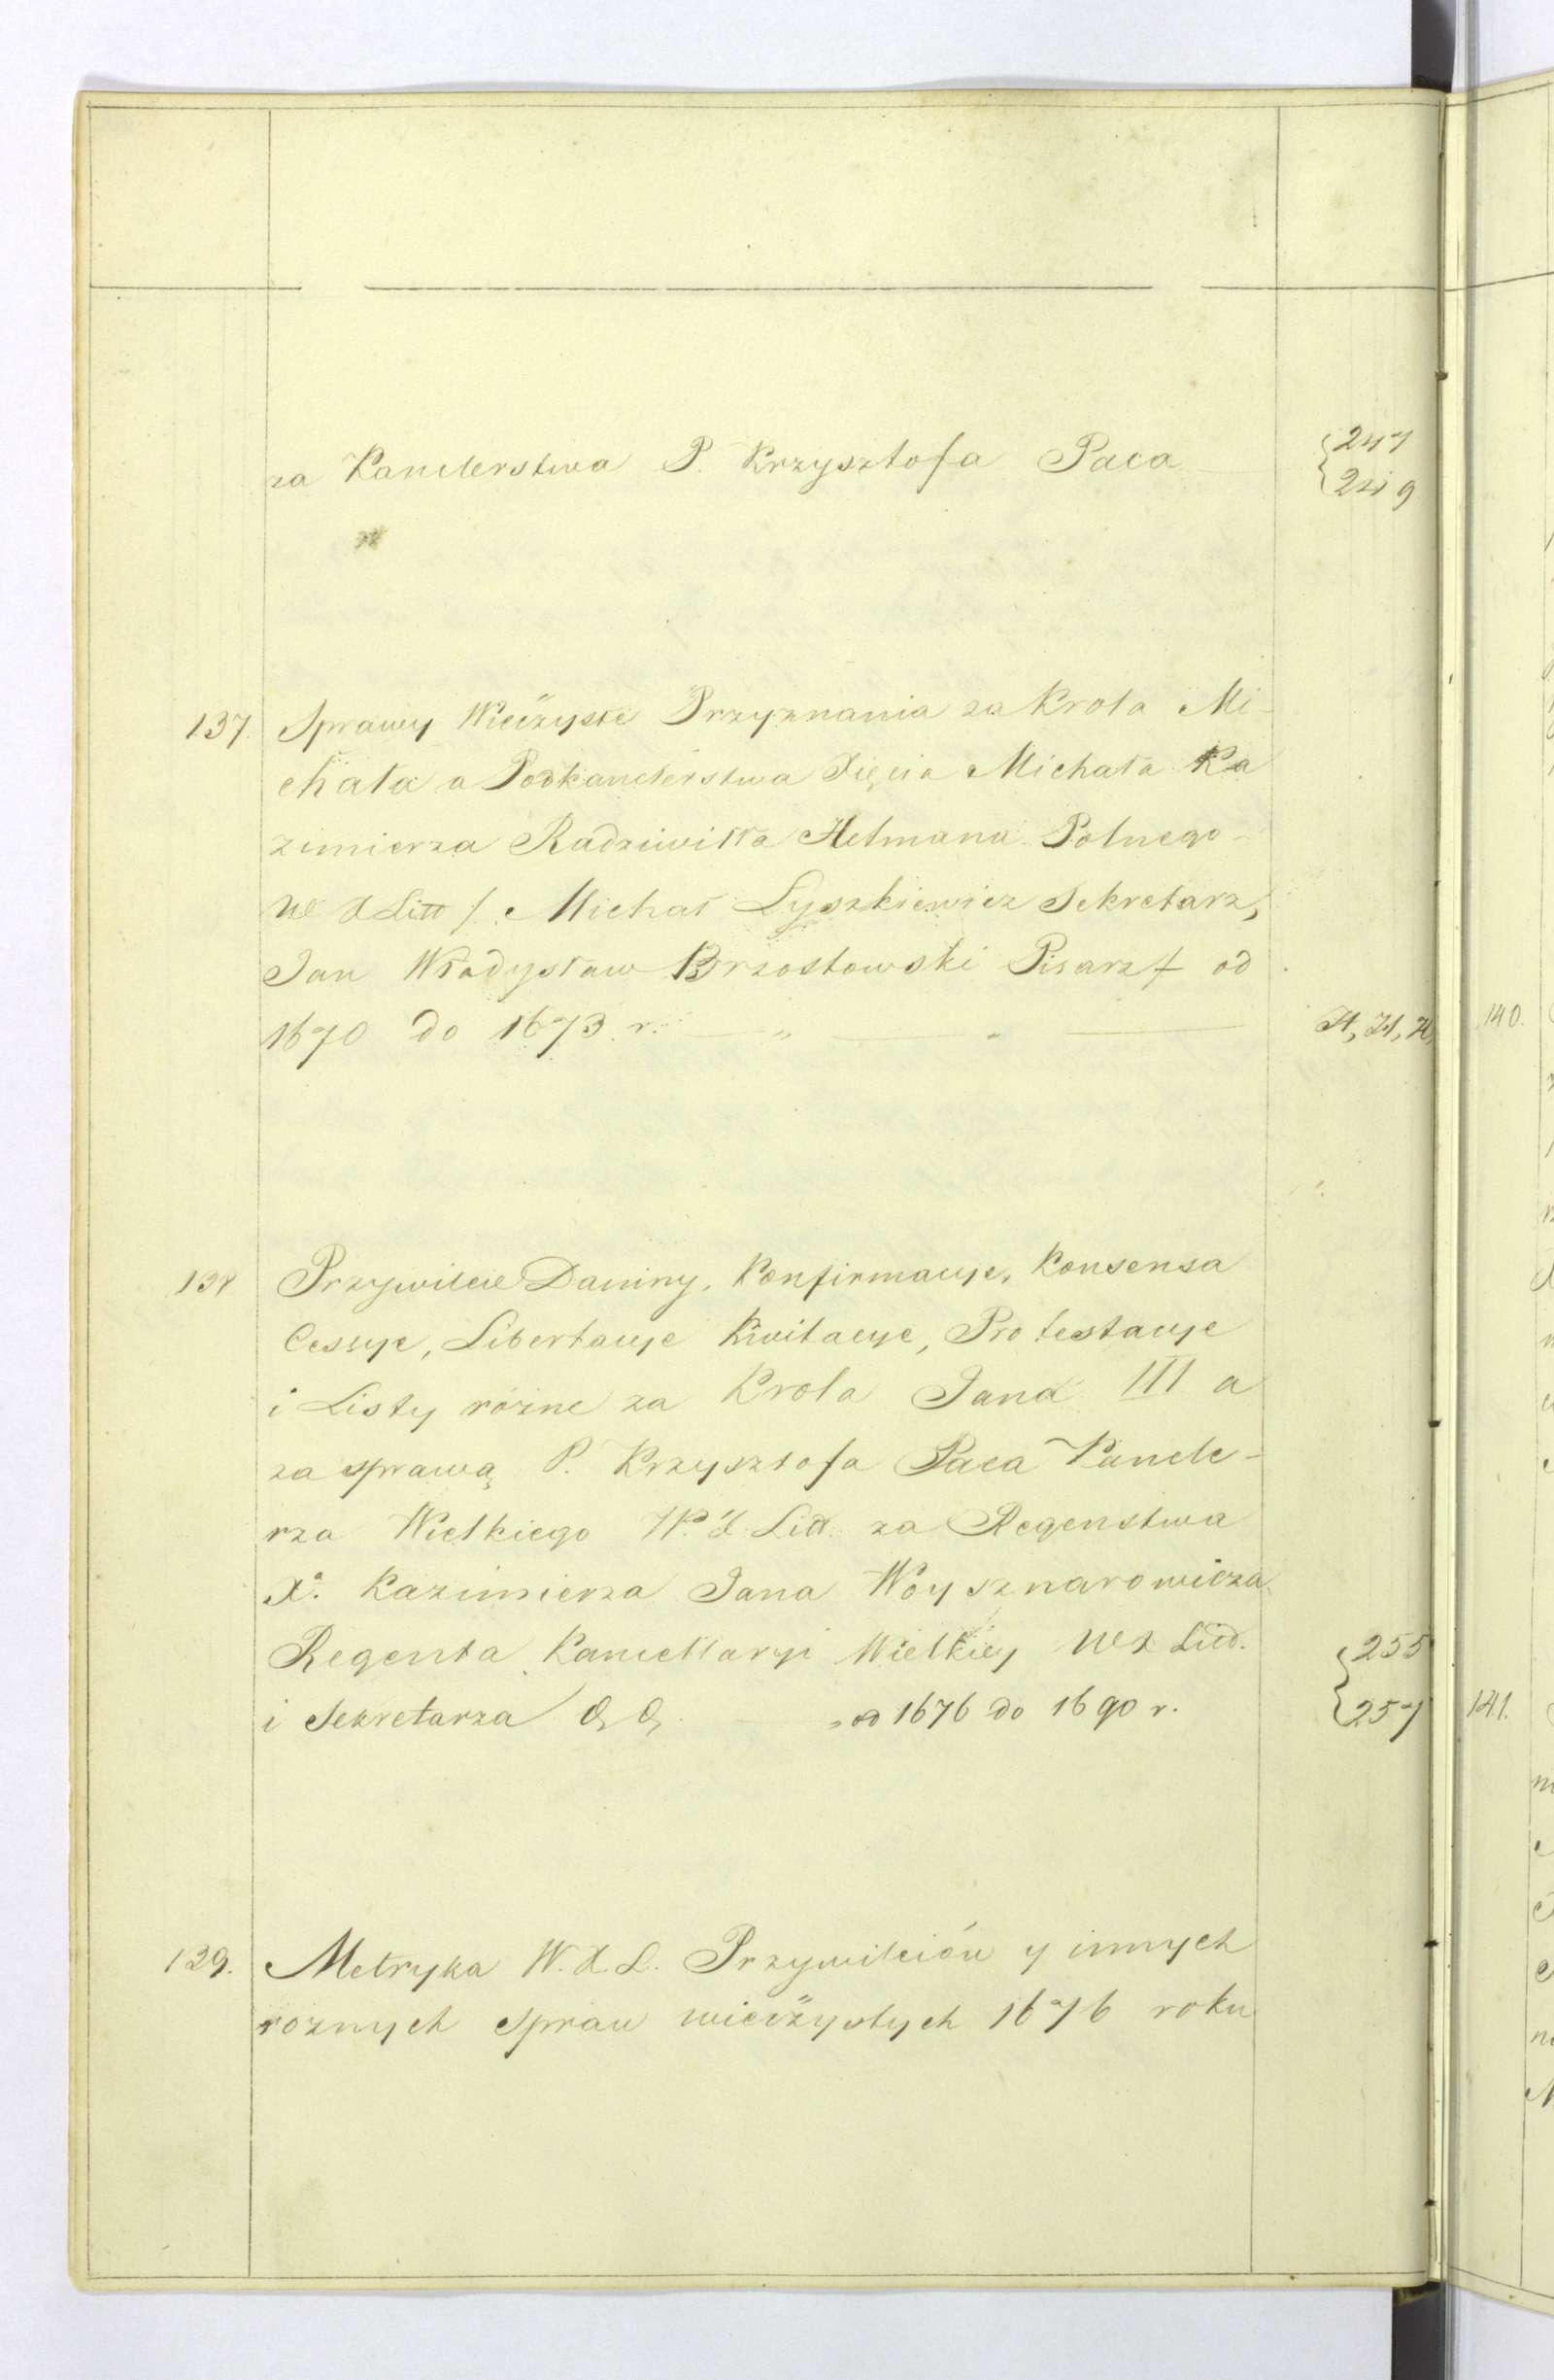 za Kanclerstwa P. Krzysztofa Paca {247
{249
137. Sprawy Wieczyste Przyznania za Krola Mi-
chała a Podkanclerstwa Xięcia Michała Ka
zimierza Radziwiłła Hetmana Polnego
W X Litt /. Michał Lyszkiewicz Sekretarz,
Jan Władysław Brzostowski Pisarz / od
1670 do 1673. r. " — " —
140.
138 Przywileie Daniny, Konfirmacye, Konsensa
Cessye, Libertacye Kwitacye, Protestacye
i Listy rózne za Krola Jana III a
za sprawą P. Krzysztofa Paca Kancle-
rza Wielkiego W. X Litt. za Regenstwa
Xa. Kazimierza Jana Woysznarowicza
Regenta Kancellaryi Wielkiey W X Litt. {255
i Sekretarza od 1676 do 1690 r. {257
141.
139. Metryka W. X. L. Przywileiów y innych
roznych spraw wieczystych 1676 roku